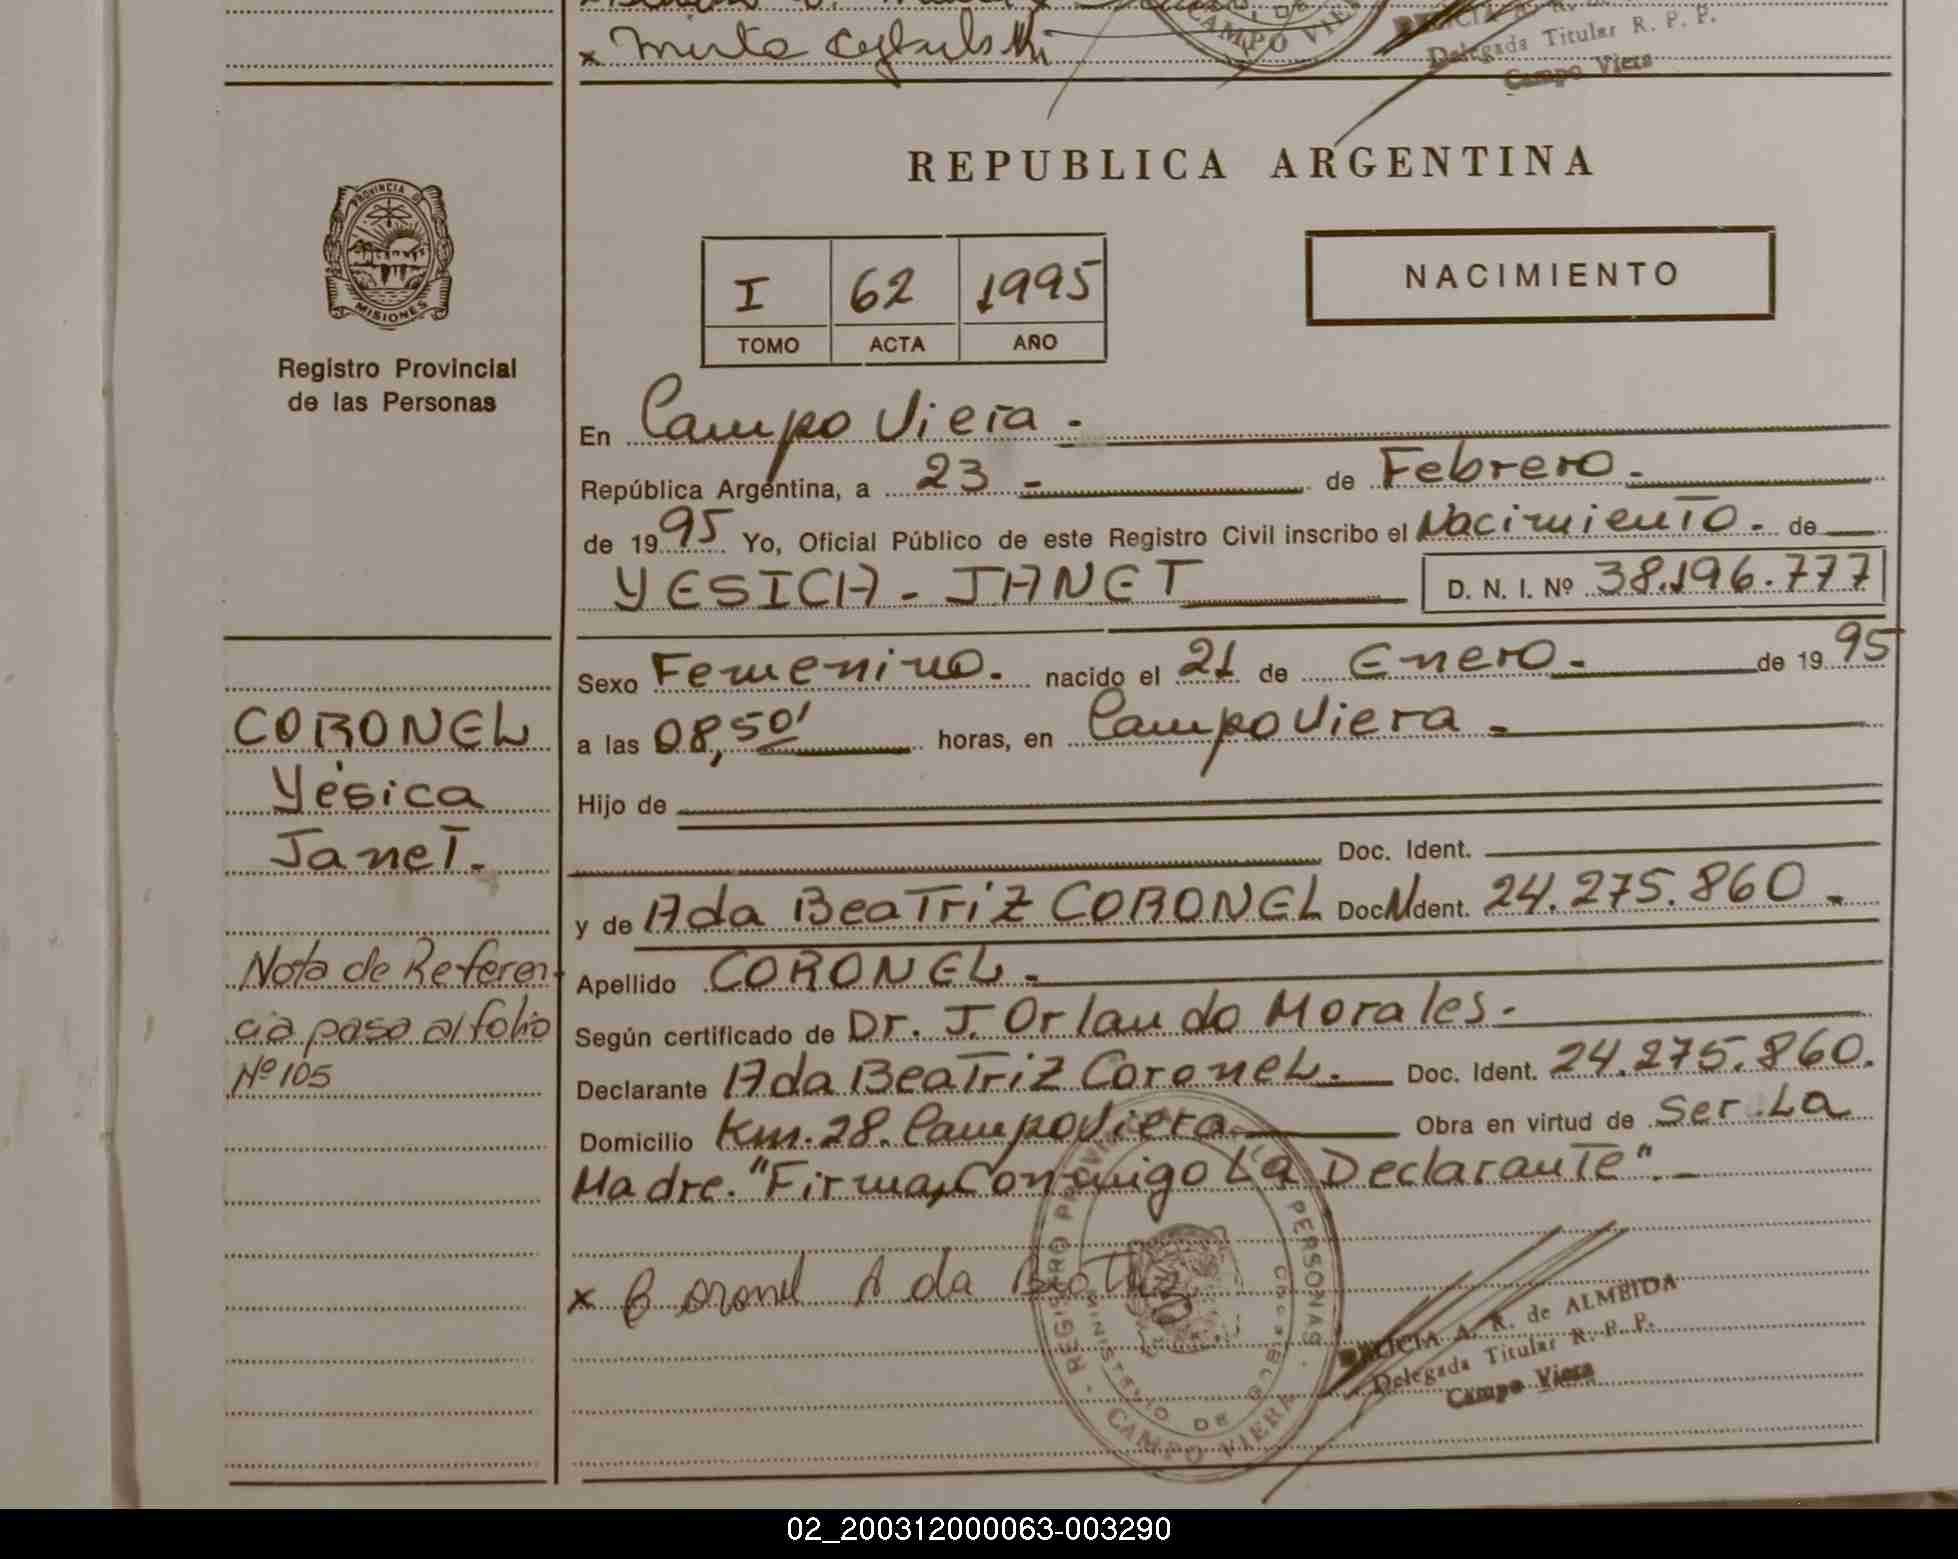 x Mirta
CAMPO VIE
Delegada Titular R. P. P.
Campo Viera
PROVINCIA D
MISIONES
Registro Provincial
de las Personas
REPUBLICA ARGENTINA
I 62 1995
TOMO ACTA AÑO
NACIMIENTO
En Campo Viera.-
República Argentina, a 23 - de Febrero.
de 1995 Yo, Oficial Público de este Registro Civil inscribo el Nacimiento. de
YESICA - JANET D. N. I. Nº 38.196.777
Sexo Femenino. nacido el 21 de Enero.- de 1995
a las 08,50' horas, en Campo Viera -
Hijo de
Doc. Ident.
y de Ada Beatriz CORONEL Doc. Ident. 24.275.860.-
Apellido CORONEL.-
Según certificado de Dr. J. Orlando Morales.-
Declarante Ada Beatriz Coronel. Doc. Ident. 24.275.860.
Domicilio Km. 28. Campo Viera Obra en virtud de Ser La
Madre. "Firma, Conmigo La Declarante".-
x Coronel Ada Beatriz
CORONEL
Yésica
Janet.
Nota de Referen-
cia paso al folio
Nº 105
REGISTRO PROVI PERSONAS
MINISTERIO DE GOB
CAMPO VIERA
A. R. de ALMEIDA
Delegada Titular R. P. P.
Campo Viera
02_200312000063-003290